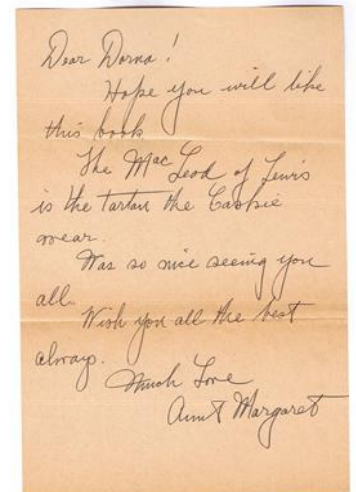 Dear Dorna!
Hope you will like
this book.
The MacLeod of Lewis
is the tartan the Caskie
wear.
Was so nice seeing you
all.
Wish you all the best
always.
Much Love
Aunt Margaret